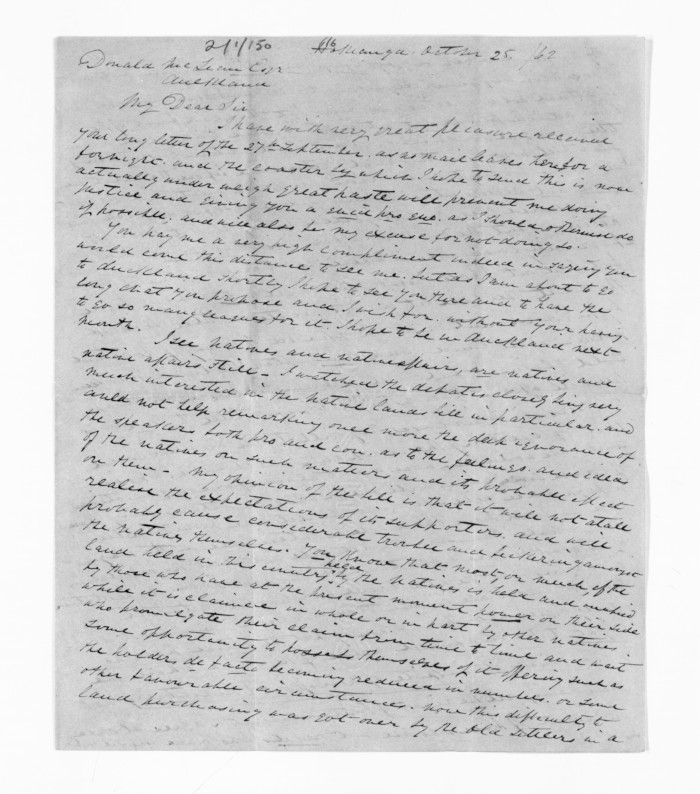 2/1/150 616 Hokianga October 25, /62
Donald McLean Esqr
Auckland
My Dear Sir
I have with very great pleasure received
your long letter of the 27th September. as a mail leaves here for a
fornight. and the coaster by which I hope to send this is now
actually under weigh great haste will prevent me doing
justice and giving you a quid pro quo. as I should otherwise do
if possible. and will also be my excuse for not doing so.
You pay me a very high compliment indeed in saying you
would come this distance to see me. but as I am about to go
to Auckland shortly I hope to see you there and to have the
long chat you propose and I wish for. without your having
to go so many leagues for it I hope to be in Auckland next
month.
I see natives and native affairs, are natives and
native affairs still – I watched the debates closely being very
much interested in the native lands bill in particular. and
could not help remarking once more the deep ignorance of
the speakers both pro and con. as to the feelings. and ideas
of the natives on such matters and its probable effect
on them – my opinion of the bill is that it will not atall
realise the expectations of its supporters. and will
probably cause considerable trouble and bickering amongst
the natives themselves. You know that most, or much, of the
land held in this country by the Natives is held and
by those who have at the present moment power on their side
while it is claimed in whole or in part by other natives
who promulgate their claim from time to time and wait
some opportunity to possess themselves of it offering such as
the holders de facto becoming reduced in number. or some
other favourable circumstances. now this difficulty to
land purchasing was got over by the old settlers in a